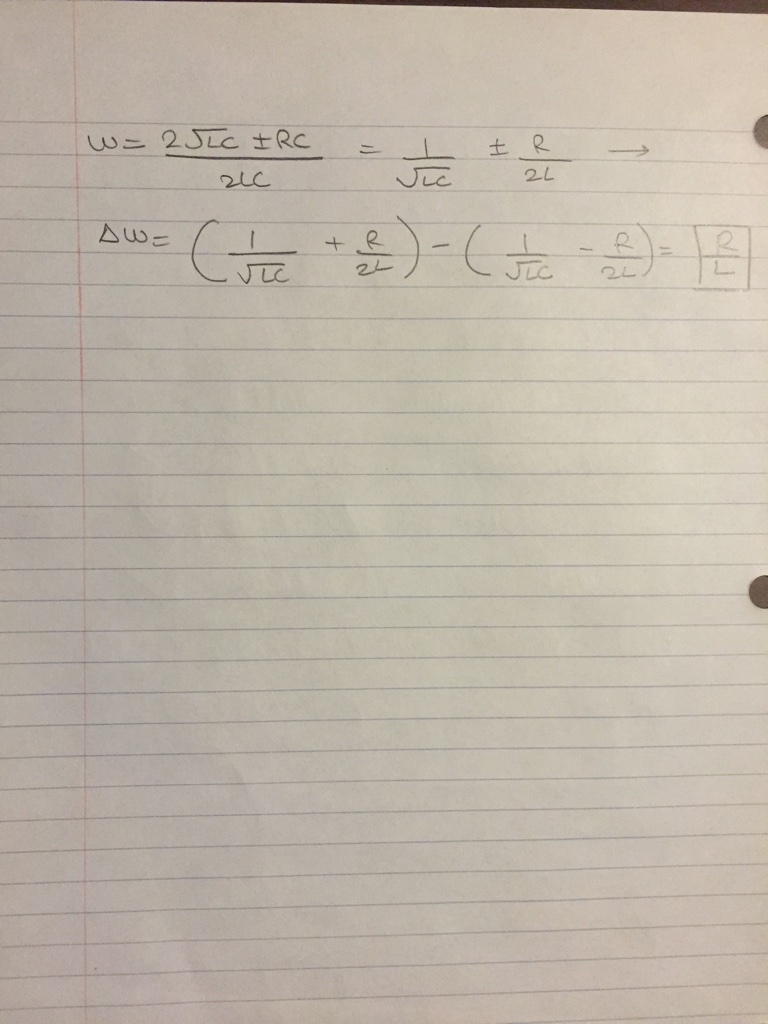 W = (2√LC ± RC)/(2LC) = 1/√LC ± R/2L →
ΔW = (1/√LC + R/2L) - (1/√LC - R/2L) = R/L